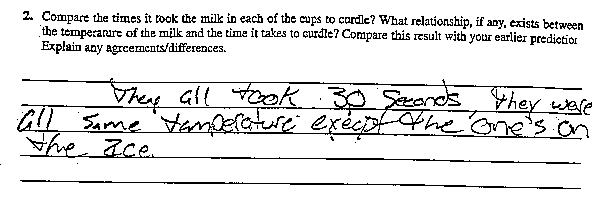 2. Compare the times it took the milk in each of the cups to curdle? What relationship, if any, exists between
the temperature of the milk and the time it takes to curdle? Compare this result with your earlier predictior
Explain any agreements/differences.
They all took 30 Seconds, they were
all same tamperature execpt the one's on
the Ice.